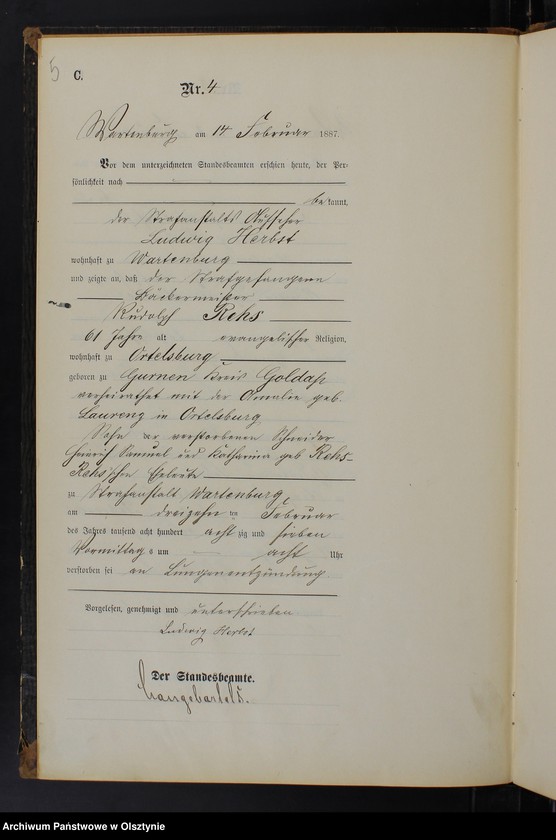 5
C.
Nr. 4
Wartenburg am 14 Februar 1887.
Vor dem unterzeichneten Standesbeamten erschien heute, der Per-
sönlichkeit nach
bekannt,
der Strafanstalts Aufseher
Ludwig Herbst
wohnhaft zu Wartenburg
und zeigte an, daß der Strafgefangene
Bäckermeister
Rudolph Rehs
61 Jahre alt evangelischer Religion,
wohnhaft zu Ortelsburg
geboren zu Gurnen Kreis Goldap
verheirathet mit der Amalie geb.
Laurenz in Ortelsburg
Sohn der verstorbenen Schneider
Heinrich Samuel und Katharina geb Rehs-
Rehs'schen Eheleute
zu Strafanstalt Wartenburg
am dreizehnten Februar
des Jahres tausend acht hundert achtzig und sieben
Vormittags um acht Uhr
verstorben sei an Lungenentzündung.
Vorgelesen, genehmigt und unterschrieben
Ludwig Herbst
Der Standesbeamte.
Archiwum Państwowe w Olsztynie